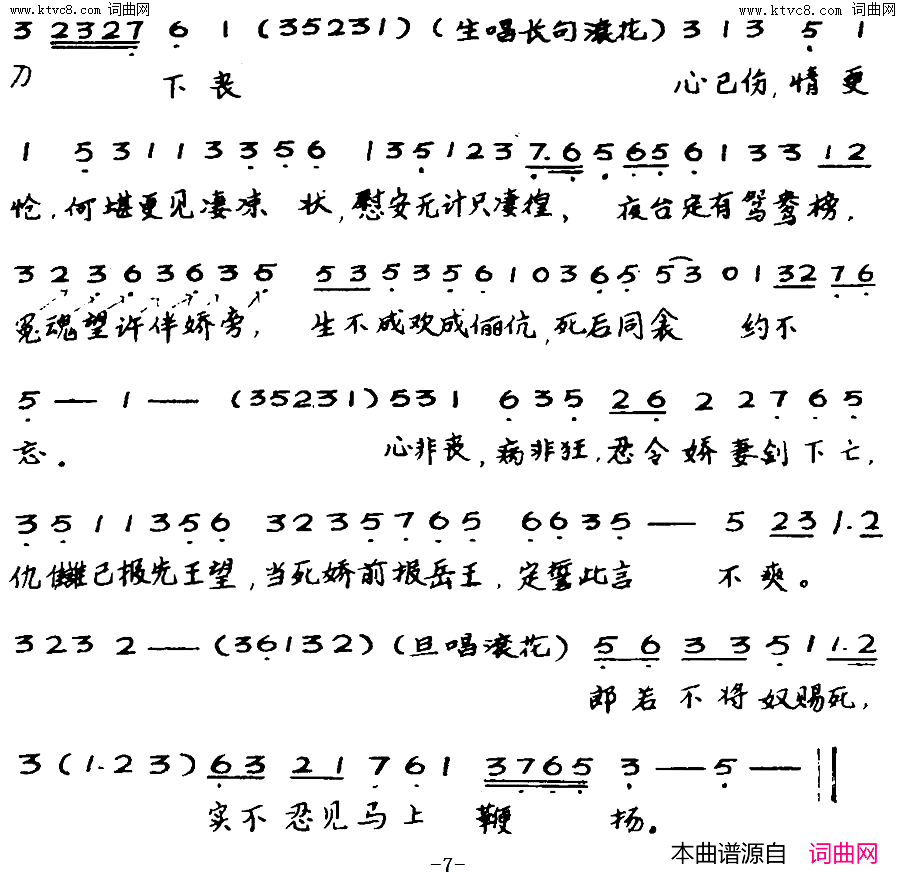 www.ktvc8.com 词曲网 www.ktvc8.com 词曲网
3 2327 6 1 (35231) (生唱长句滚花) 3 1 3 5 1
刀 下丧 心已伤,情更
1 5 3 1 1 3 3 5 6 1 3 5 1 2 3 7.6 5 65 6 1 3 3 12
怆,何堪更见凄凉 状,慰安无计只凄惶, 夜台定有鸳鸯榜,
3 2 3 6 3 6 3 5 53 5 3 5 6 1 0 3 6 5 53 0 1 32 76
冤魂望许伴娇旁, 生不成欢成俪伉,死后同衾 约不
5 — 1 — (35231) 5 3 1 6 3 5 26 2 2 7 6 5
忘。 心非丧,病非狂,忍令娇妻剑下亡,
3 5 1 1 3 5 6 3 2 3 5 7 6 5 6 6 3 5 — 5 23 1.2
仇雠已报先王望,当死娇前报岳王,定誓此言 不爽。
3 2 3 2 — (36132) (旦唱滚花) 56 33 5 1 1.2
郎若不将奴赐死,
3 (1.2 3) 63 21 7 6 1 3765 3 — 5 —
实不忍见马上 鞭 扬。
本曲谱源自 词曲网
-7-